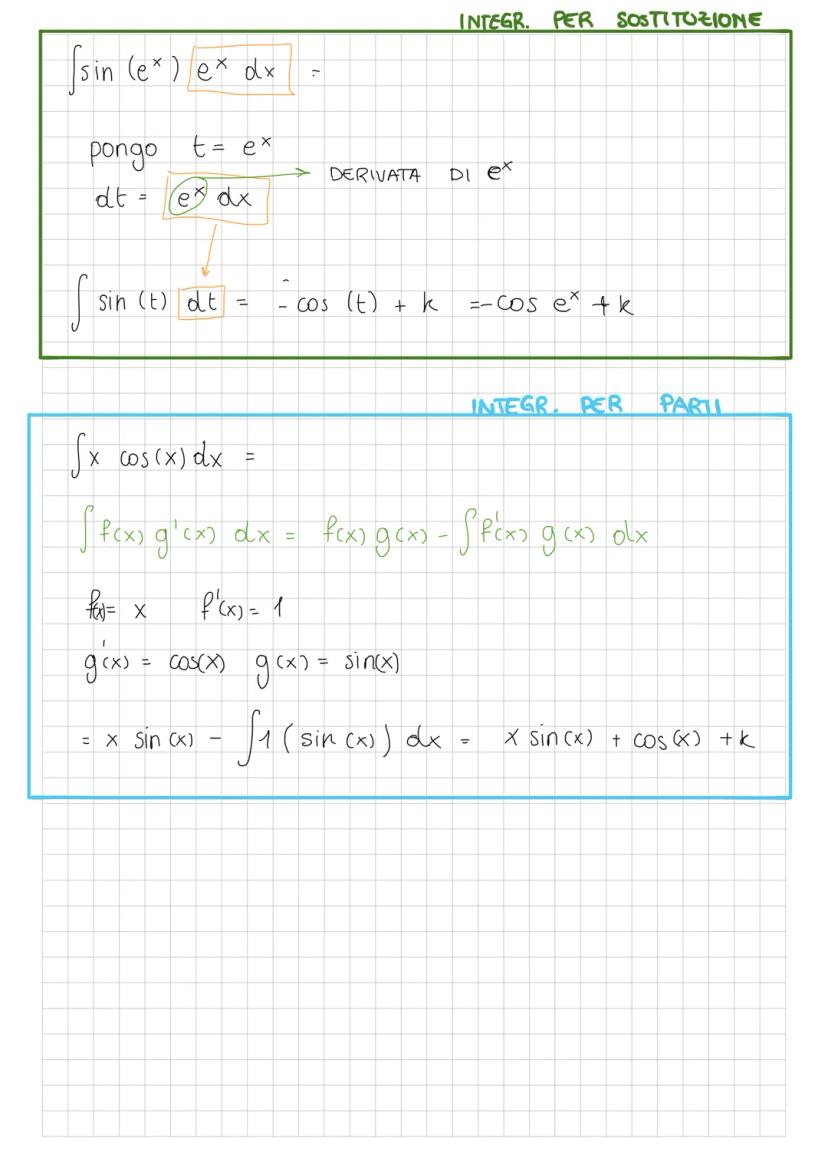 INTEGR. PER SOSTITUZIONE
∫sin (eˣ) eˣ dx =
pongo t = eˣ
dt = eˣ dx → DERIVATA DI eˣ
∫ sin (t) dt = - cos (t) + k =-cos eˣ + k
INTEGR. PER PARTI
∫x cos(x) dx =
∫f(x) g'(x) dx = f(x) g(x) - ∫f'(x) g(x) dx
f(x)= x f'(x) = 1
g'(x) = cos(x) g(x) = sin(x)
= x sin(x) - ∫1 (sin(x)) dx = x sin(x) + cos(x) + k